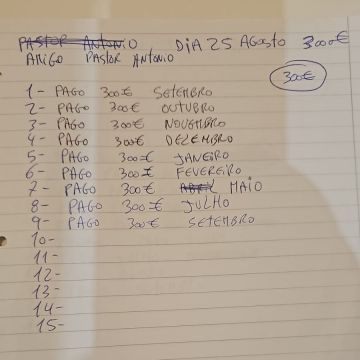 PASTOR ANTONIO DIA 25 AGOSTO 3000€
AMIGO PASTOR ANTONIO
300€
1- PAGO 300€ SETEMBRO
2- PAGO 300€ OUTUBRO
3- PAGO 300€ NOVEMBRO
4- PAGO 300€ DEZEMBRO
5- PAGO 300€ JANEIRO
6- PAGO 300€ FEVEREIRO
7- PAGO 300€ ABRIL MAIO
8- PAGO 300€ JULHO
9- PAGO 300€ SETEMBRO
10-
11-
12-
13-
14-
15-